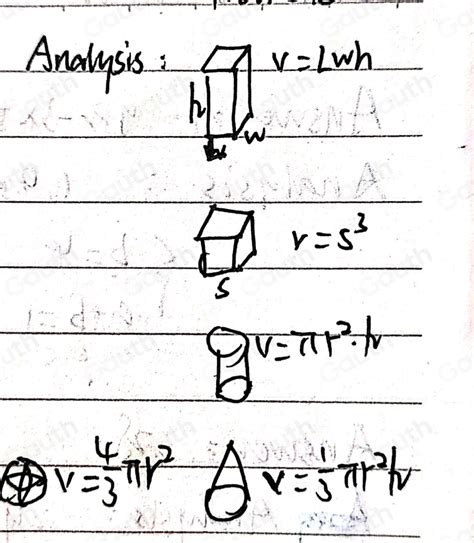 Analysis : V = Lwh
h
w
V = s³
s
V = πr². h
V = 4/3 πr² V = 1/3 πr²h